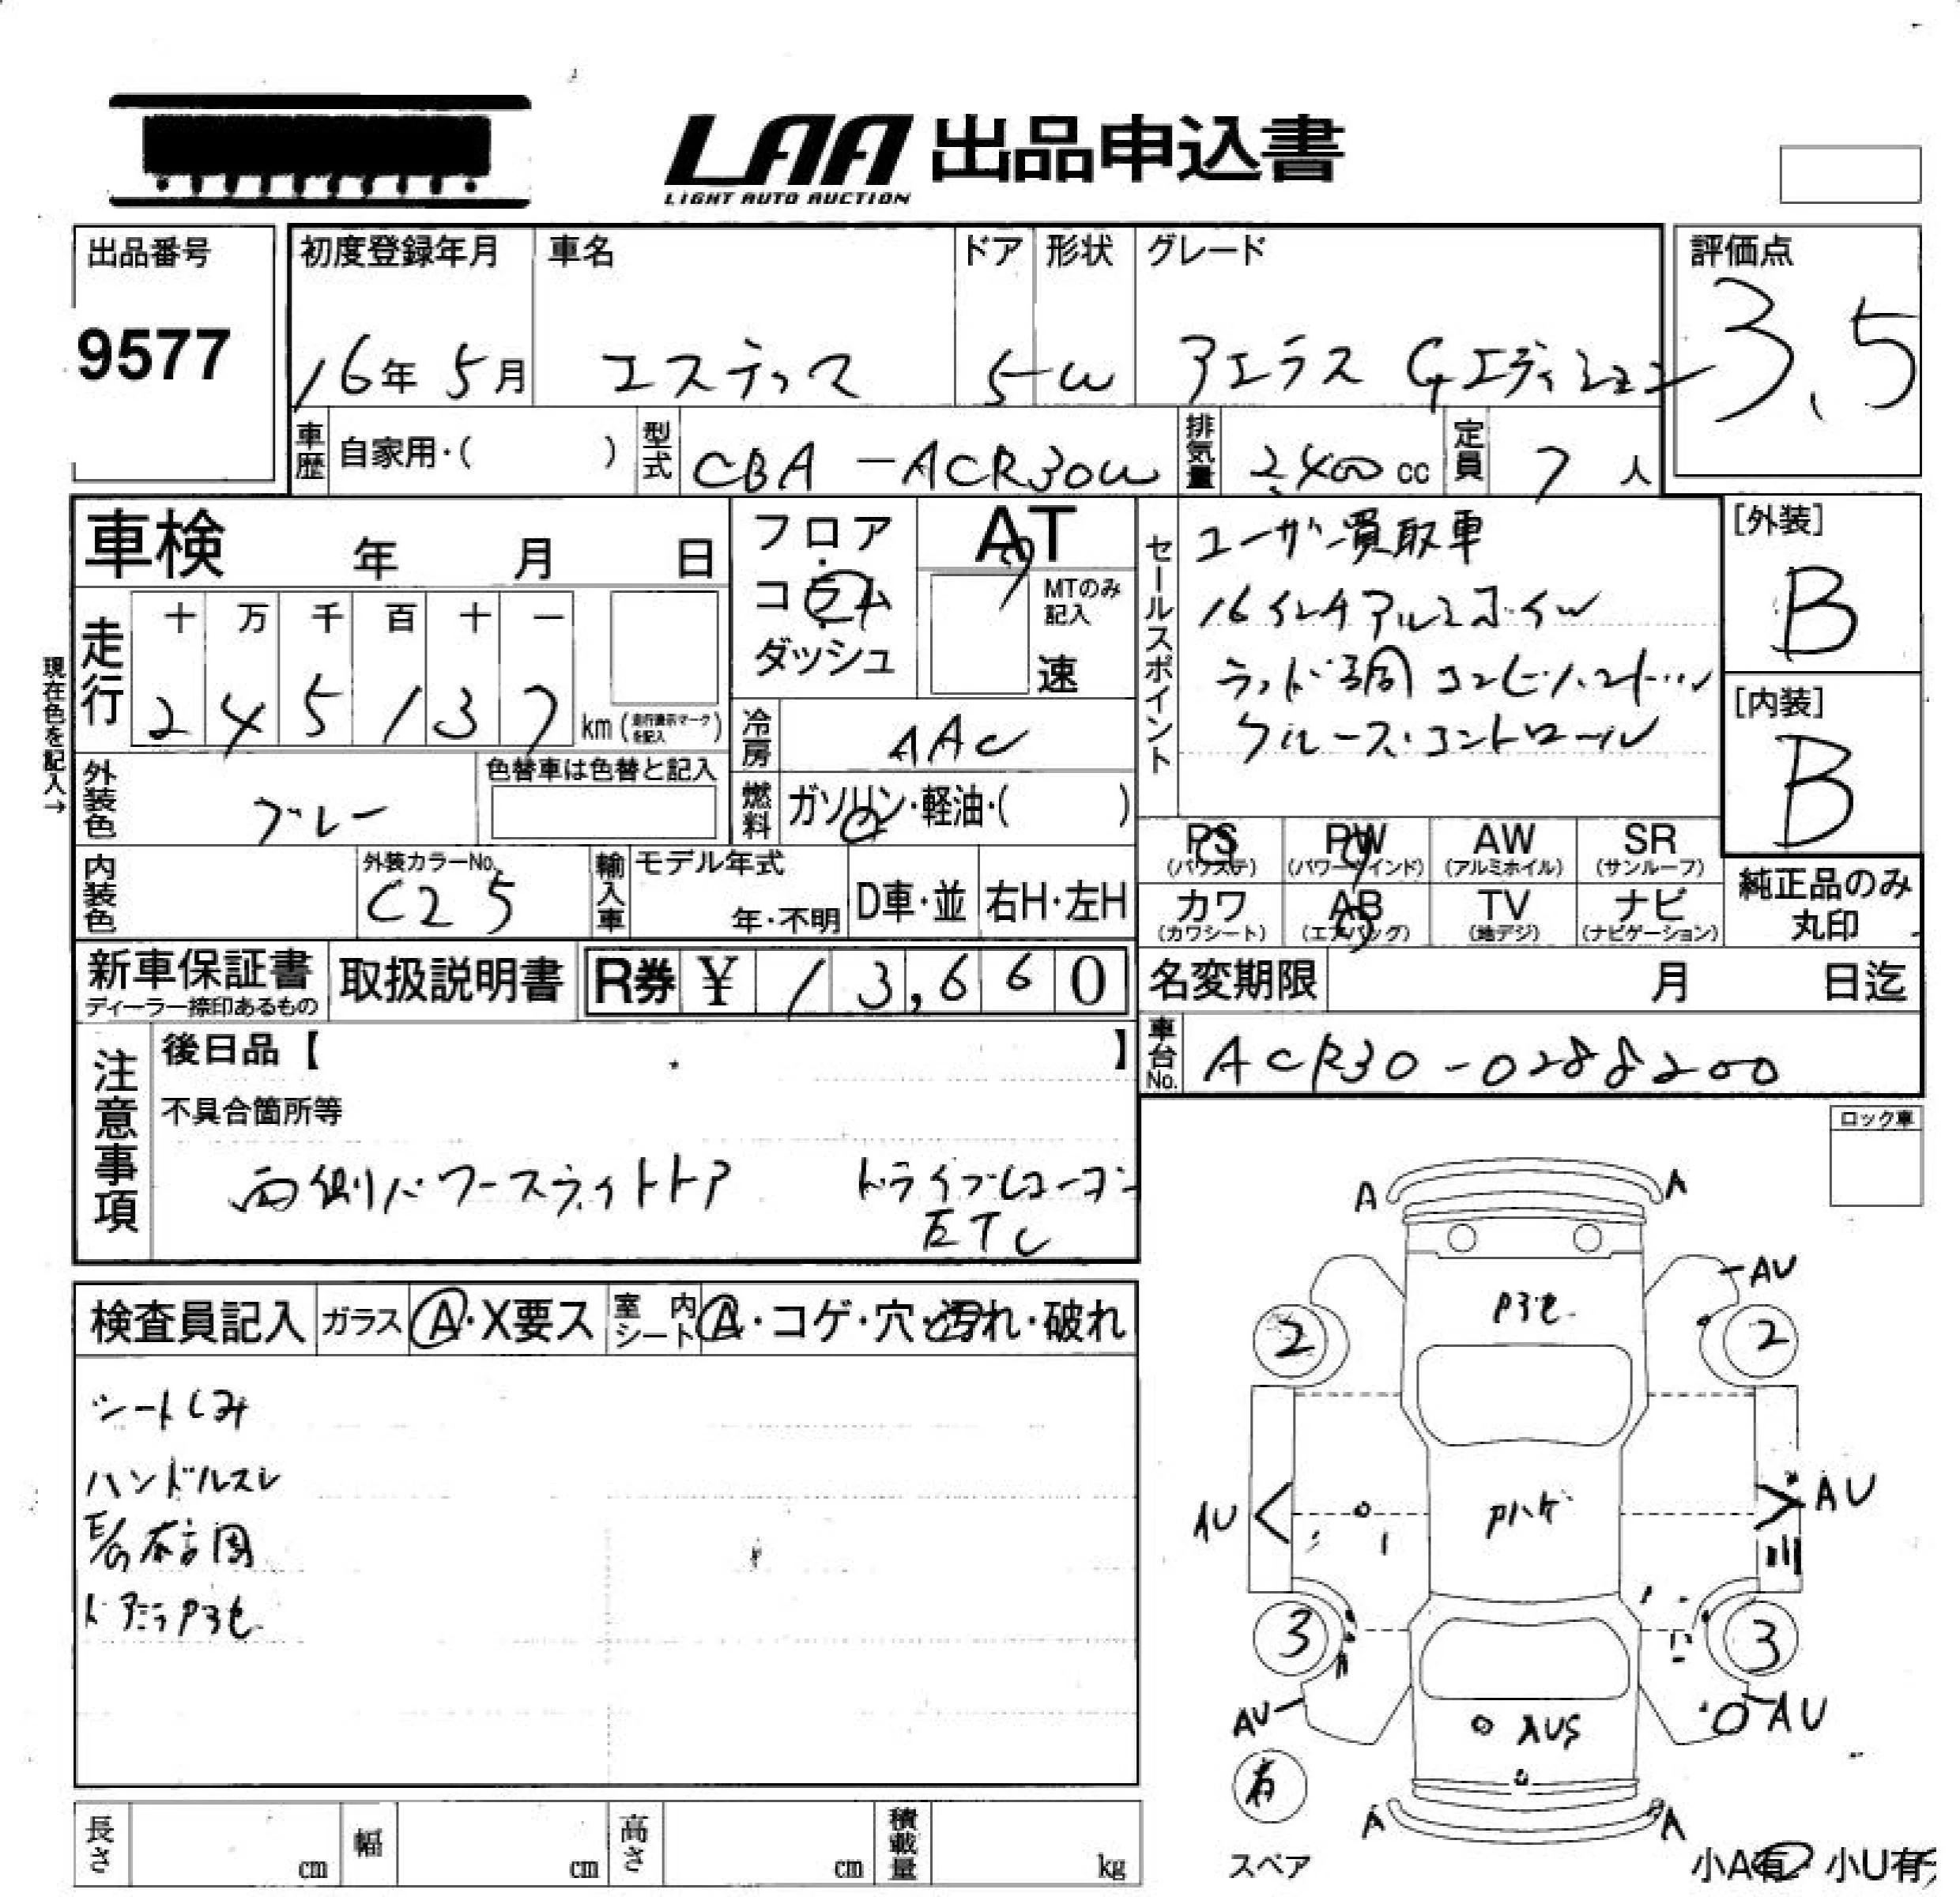 LAA 出品申込書
LIGHT AUTO AUCTION
出品番号
9577
初度登録年月
16年 5月
車名
エスティマ
ドア
5
形状
W
グレード
アエラス Gエディション
評価点
3.5
車歴
自家用・( )
型式
CBA-ACR30W
排気量
2400 cc
定員
7 人
車検 年 月 日
フロア
コラム
ダッシュ
AT
MTのみ
記入
速
セールスポイント
ユーザー買取車
16インチアルミホイル
ウッド調コンビハンドル
クルーズコントロール
[外装]
B
[内装]
B
現在色を記入→
走行
十 万 千 百 十 一
2 4 5 1 3 7
km (走行表示マークを記入)
冷房
AAC
外装色
色替車は色替と記入
燃料
ガソリン・軽油・( )
PS
(パワステ)
PW
(パワーウインド)
AW
(アルミホイル)
SR
(サンルーフ)
カワ
(カワシート)
AB
(エアバッグ)
TV
(地デジ)
ナビ
(ナビゲーション)
純正品のみ
丸印
内装色
外装カラーNo.
C25
輸入車
モデル年式
年・不明
D車・並
右H・左H
新車保証書
ディーラー捺印あるもの
取扱説明書
R券 ¥ 13,660
名変期限 月 日迄
車台No.
ACR30-0288200
注意事項
後日品【 】
不具合箇所等
両側パワースライドドア ドライブレコーダー
ETC
ロック車
検査員記入
ガラス
A・X要ス
室内シート
A・コゲ・穴・汚れ・破れ
シートしみ
ハンドルスレ
ドアミラーP3セ
A A
AV
P3セ
2 2
AU
AU
Pハゲ
3 3
AU
AU
AUS
有
スペア
A A
小A有 小U有
長さ cm
幅 cm
高さ cm
積載量 kg